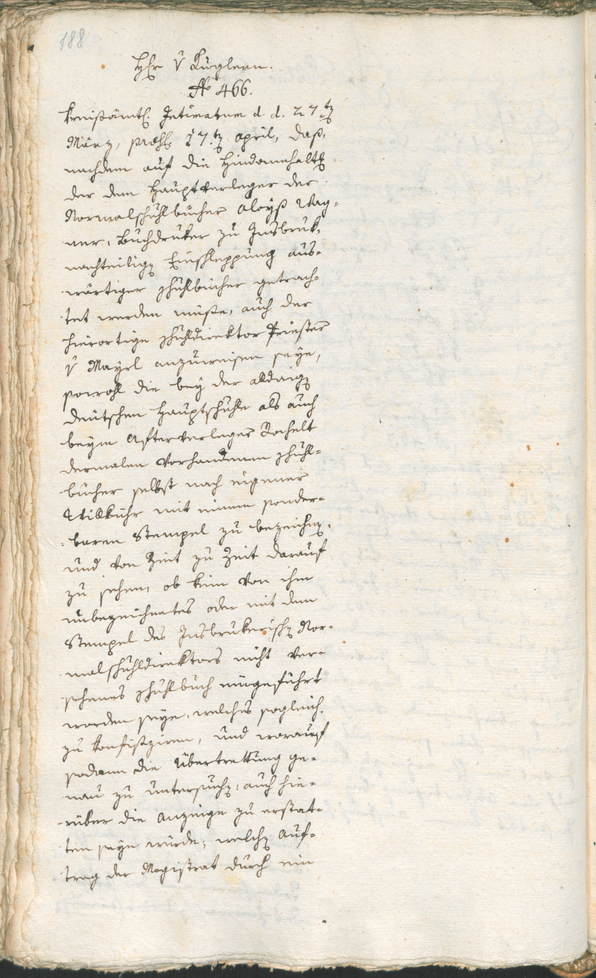 188
Hr v Kuglern.
No 466.
Kreißämtl. Intimatum d. d. 27ten
März, praes. 17ten April, daß,
nachdem auf die Hindannhaltg
der dem Hauptverleger der
Normalschulbücher Aloyß Wag¬
ner, Buchdruker zu Insbruk,
nachteilige Einschleppung aus¬
wärtiger Schulbücher getrach¬
tet werden müße, auch der
hierortige Schuldirektor Priester
v Mayrl anzuweisen seye,
sowohl die bey der alldaig
deutschen Hauptschule als auch
beym Afterverleger
dermalen vorhandenen Schul¬
bücher selbst nach eigener
Willkuhr mit einem sonder¬
baren Stempel zu bezeichn,
und von Zeit zu Zeit darauf
zu sehen, ob kein von ihm
unbezeichnetes oder mit dem
Stempel des Insbrukerisch Nor¬
malschuldirektors nicht ver¬
sehenes Schulbuch eingeführt
worden seye, welches sogleich
zu konfisziren, und worauf
sodann die Übertrettung ge¬
nau zu untersuch, auch hie¬
rüber die Anzeige zu erstat¬
ten seyn würde; welch Auf¬
trag der Magistrat durch ein